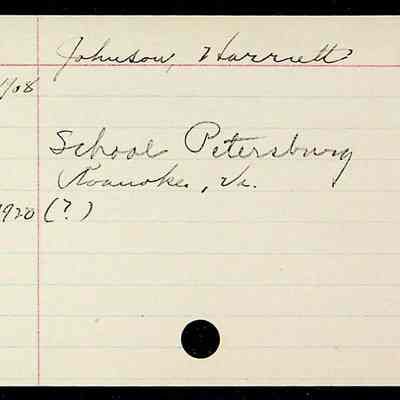 Johnson, Harriett
1908
School Petersburg
Roanoke, Va.
1920 (?)